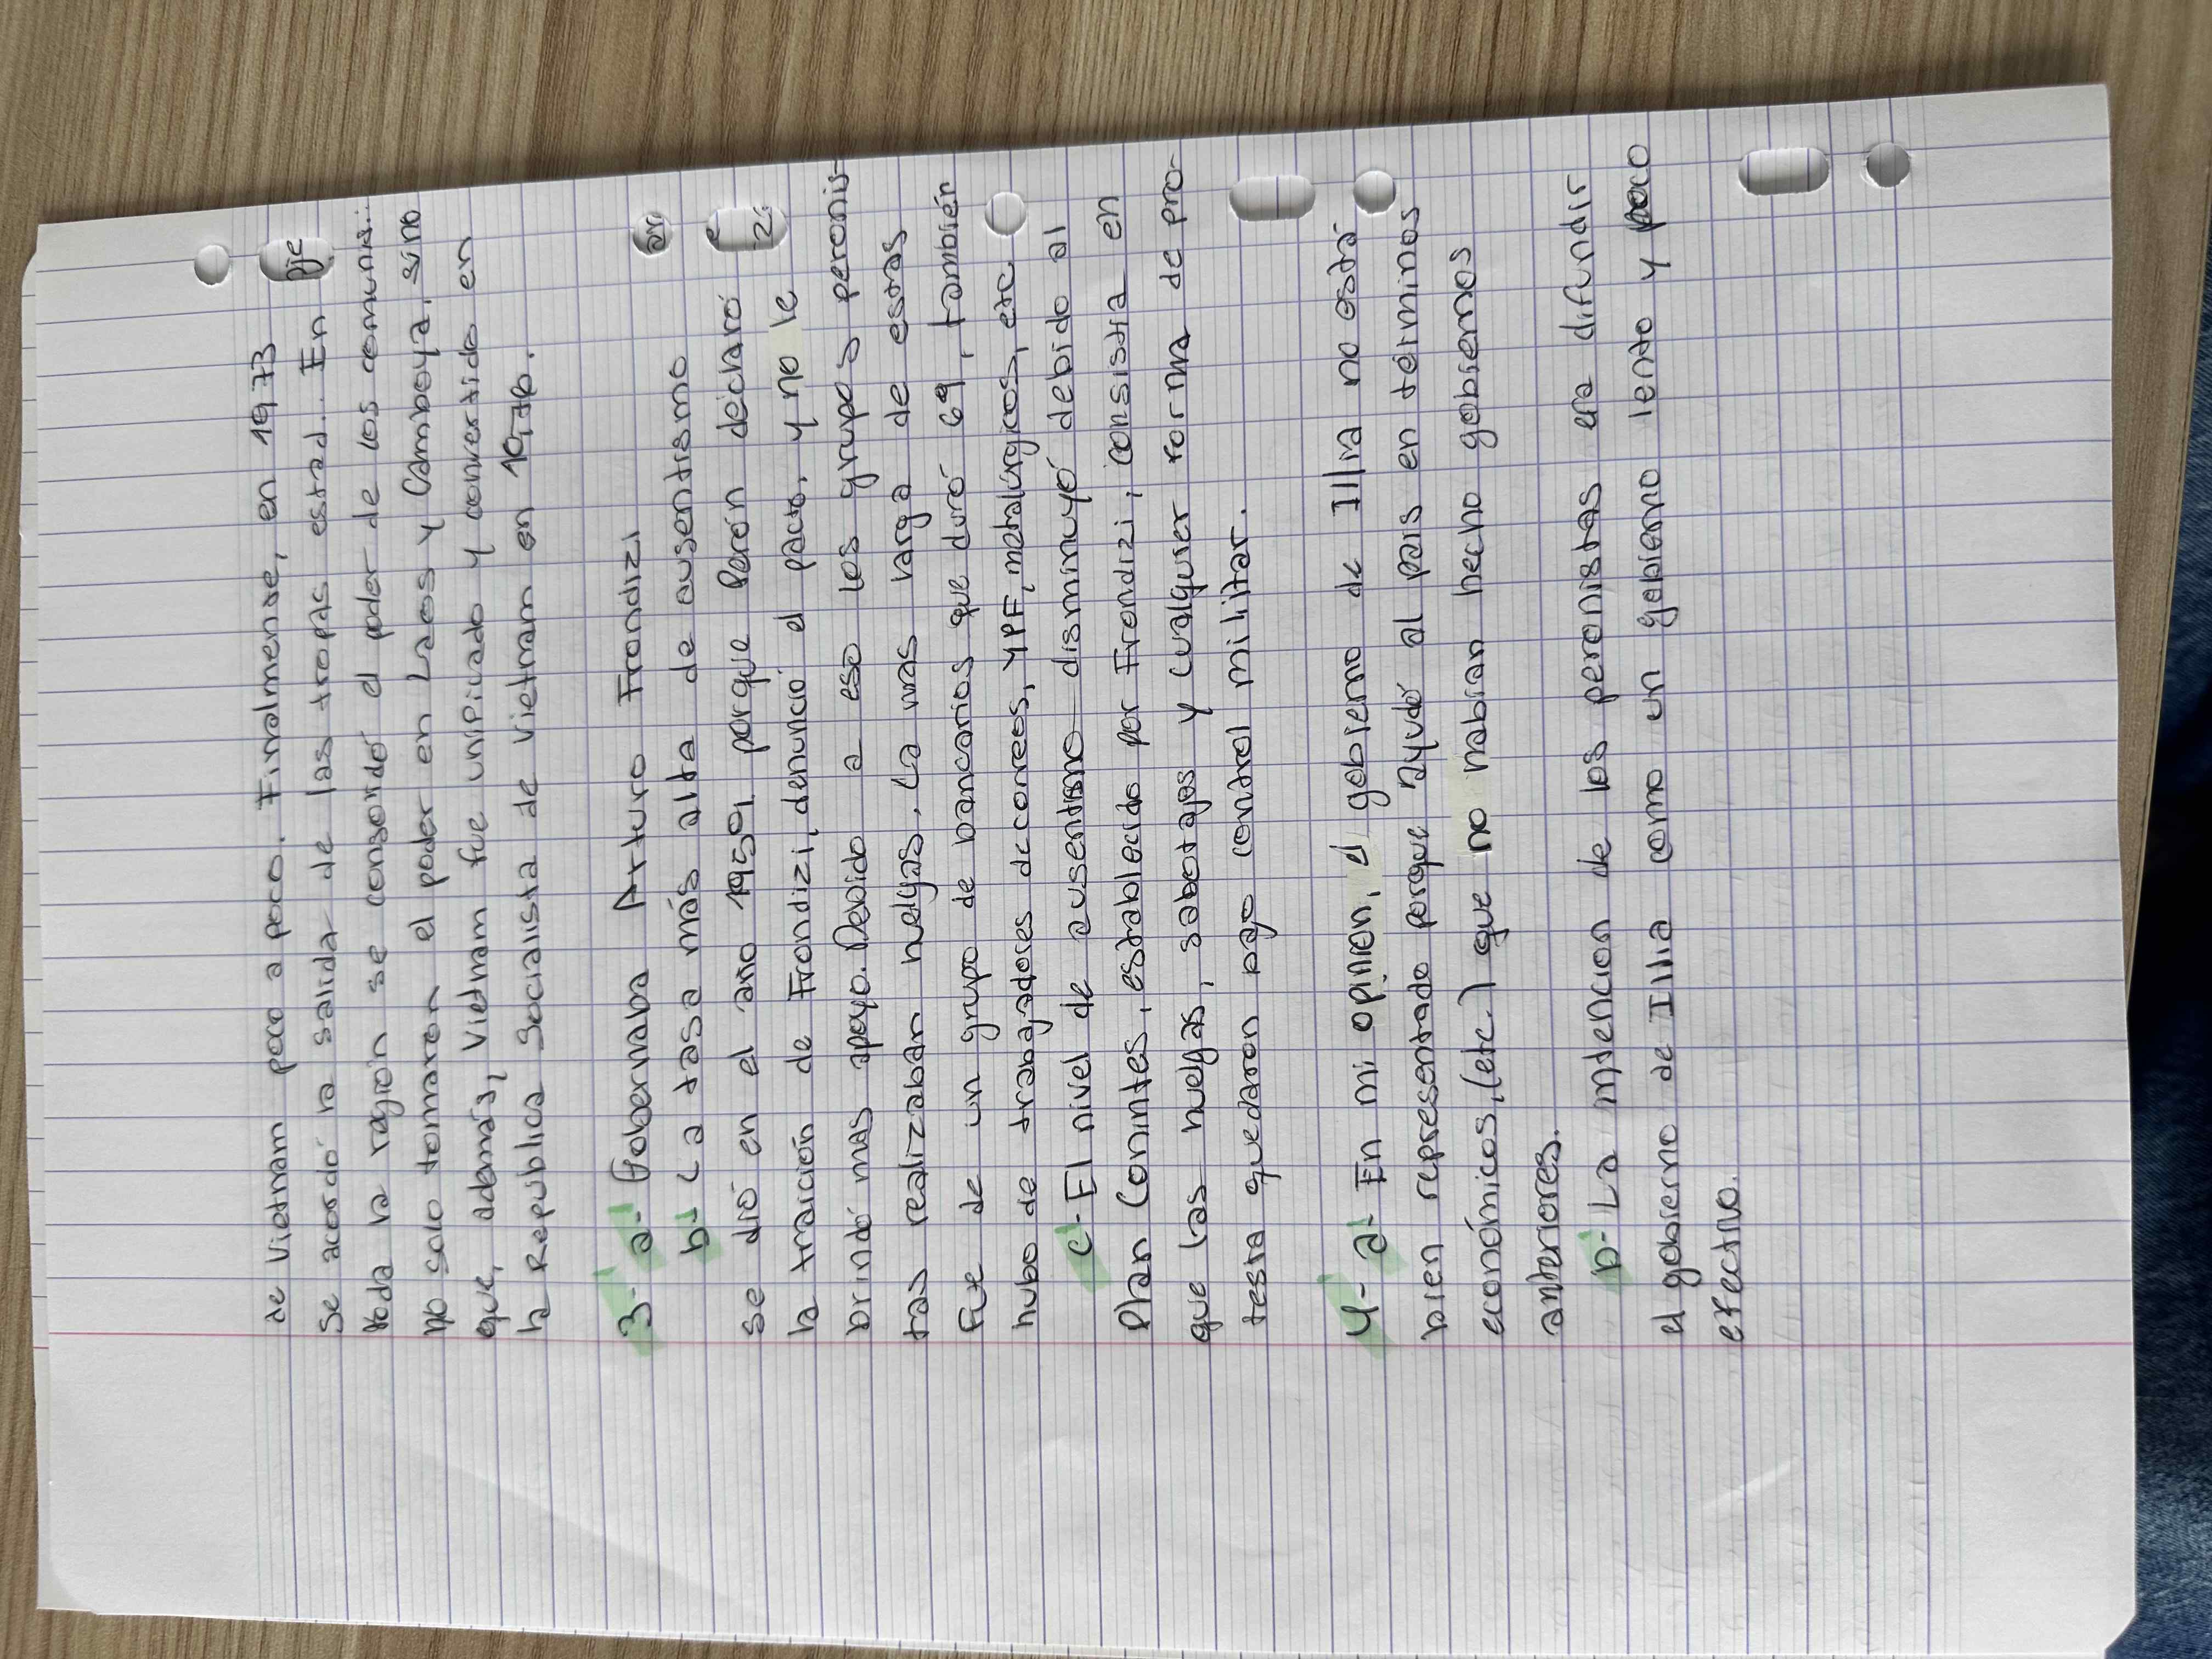 de Vietnam poco a poco. Finalmente, en 1973
se acordó la salida de las tropas estad.. En
toda la región se consolidó el poder de los comunis..
no solo tomaron el poder en Laos y Camboya, sino
que, además, Vietnam fue unificado y convertido en
la Republica Socialista de Vietnam en 1976.
3- a- Gobernaba Arturo Frondizi
b- La tasa más alta de ausentismo
se dió en el año 1959, porque Perón declaró
la traición de Frondizi, denunció el pacto, y no le
brindó mas apoyo. Debido a eso los grupos peronis-
tas realizaban huelgas. La mas larga de estas
fue de un grupo de bancarios que duró 69, también
hubo de trabajadores de correos, YPF, metalúrgicos, etc.
c- El nivel de ausentismo disminuyó debido al
Plan Conintes, establecido por Frondizi, consistia en
que las huelgas, sabotajes y cualquier forma de pro-
testa quedaron bajo control militar.
4- a- En mi opinion, el gobierno de Illia no está
bien representado porque ayudó al pais en términos
económicos, (etc.) que no habian hecho gobiernos
anteriores.
b- La intencion de los peronistas era difundir
el gobierno de Illia como un gobierno lento y poco
efectivo.